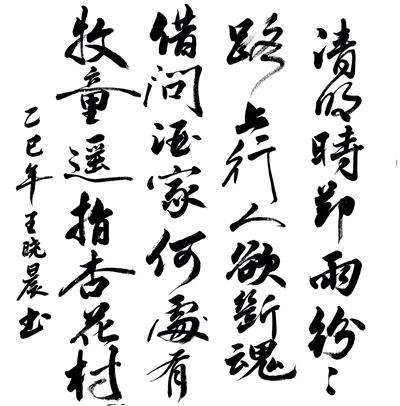 清明時節雨紛〻
路上行人欲斷魂
借問酒家何處有
牧童遥指杏花村
乙巳年王晓晨书